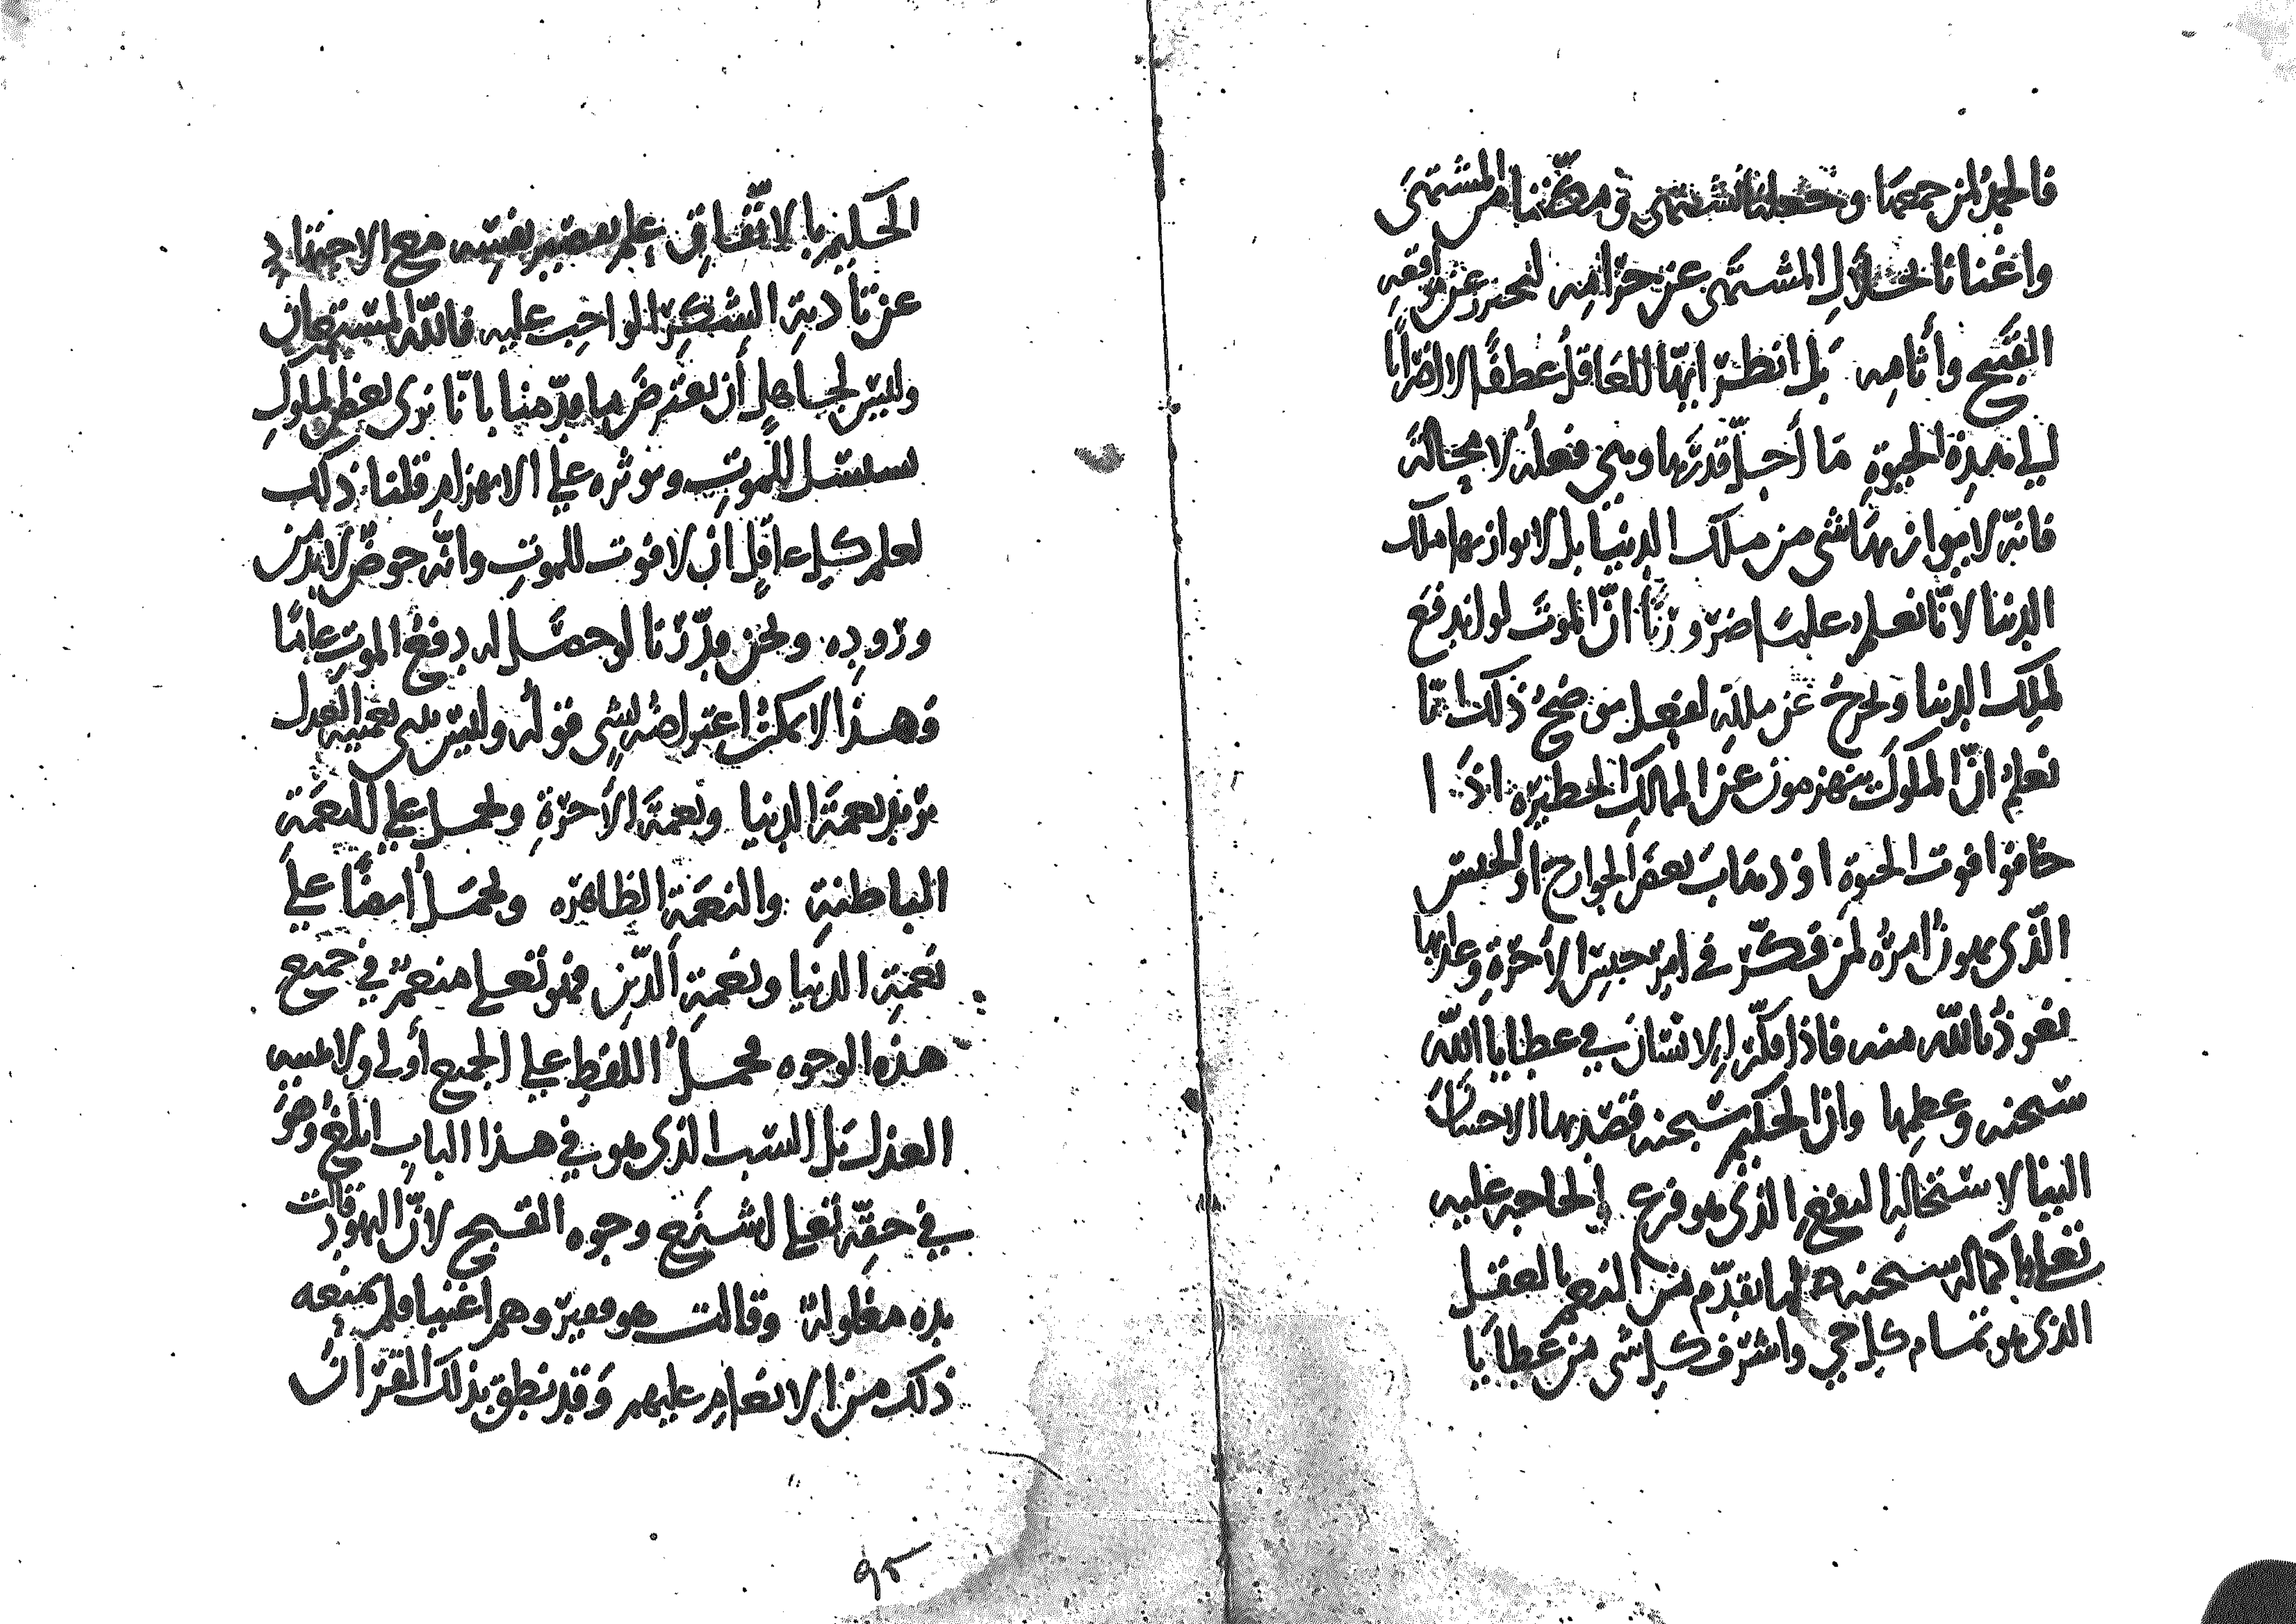 فالحمد لمن جمعها وجعلنا نشتهي ومكننا من المشتهى
واغنانا بحلال المشتهى عن حرامه لنحترز عن مواقعه
القبيح وأثامه بل انظر ايها العاقل عطفا لا اضرابا
الى هذه الحيوة ما أجل قدرها وهي فعله لا محالة
فانه لا يوازنها شي من ملك الدنيا بل لا يوازيها ملك
الدنيا لانا نعلم علما ضروريا ان الموت لو اندفع
لملك الدنيا ويخرج عن ملكه لفعل يوضح ذلك انا
نعلم ان الملوك ينهزمون عن الممالك الخطيره اذا
خافوا فوت الحيوة او ذهاب بعض الجوارح او الحبس
الذي يهون امره لمن فكر في امر حبس الأخرة وعذابها
نعوذ بالله منه فاذا فكر الانسان في عطايا الله
سبحنه وعظمها وان الحكيم سبحنه قصد بها الاحسان
الينا لاستحالة النفع الذي هو فرع الحاجة عليه
تعلى واكماله سبحنه لما تقدم من النعم بالعقل
الذي هو تمام كل حي واشرف كل شي من عطايا
الحكيم بالاتفاق علم تقصير نفسه مع الاجتهاد
عن تأدية الشكر الواجب عليه فالله المستعان
وليس لجاهل أن يعترض ما قدمنا بانا نرى بعض الملوك
يستسل للموت ويوثره على الانهزام قلنا ذلك
لعلم كل عاقل ان لا فوت للموت وانه حوض لا بد من
وروده ونحن قدرنا لو حصل له دفع الموت عاما
وهذا لا يمكن اعتراضه بشي قوله وليس
يريد نعمة الدنيا ونعمة الأخرة ويحمل على النعمة
الباطنة والنعمة الظاهره ويحمل أيضا على
نعمة الدنيا ونعمة الدين فهو تعلى منعم في جميع
هذه الوجوه فحمل اللفظ على الجميع أولى ولا يمنعه
العذل بل السب الذي هو في هذا الباب ابلغ وهو
في حقه تعلى اشنع وجوه القبح لان اليهود قالت
يده مغلولة وقالت هو فقير وهم اغنيا فلم يمنعه
ذلك من الانعام عليهم وقد نطق بذلك القران
٩٥